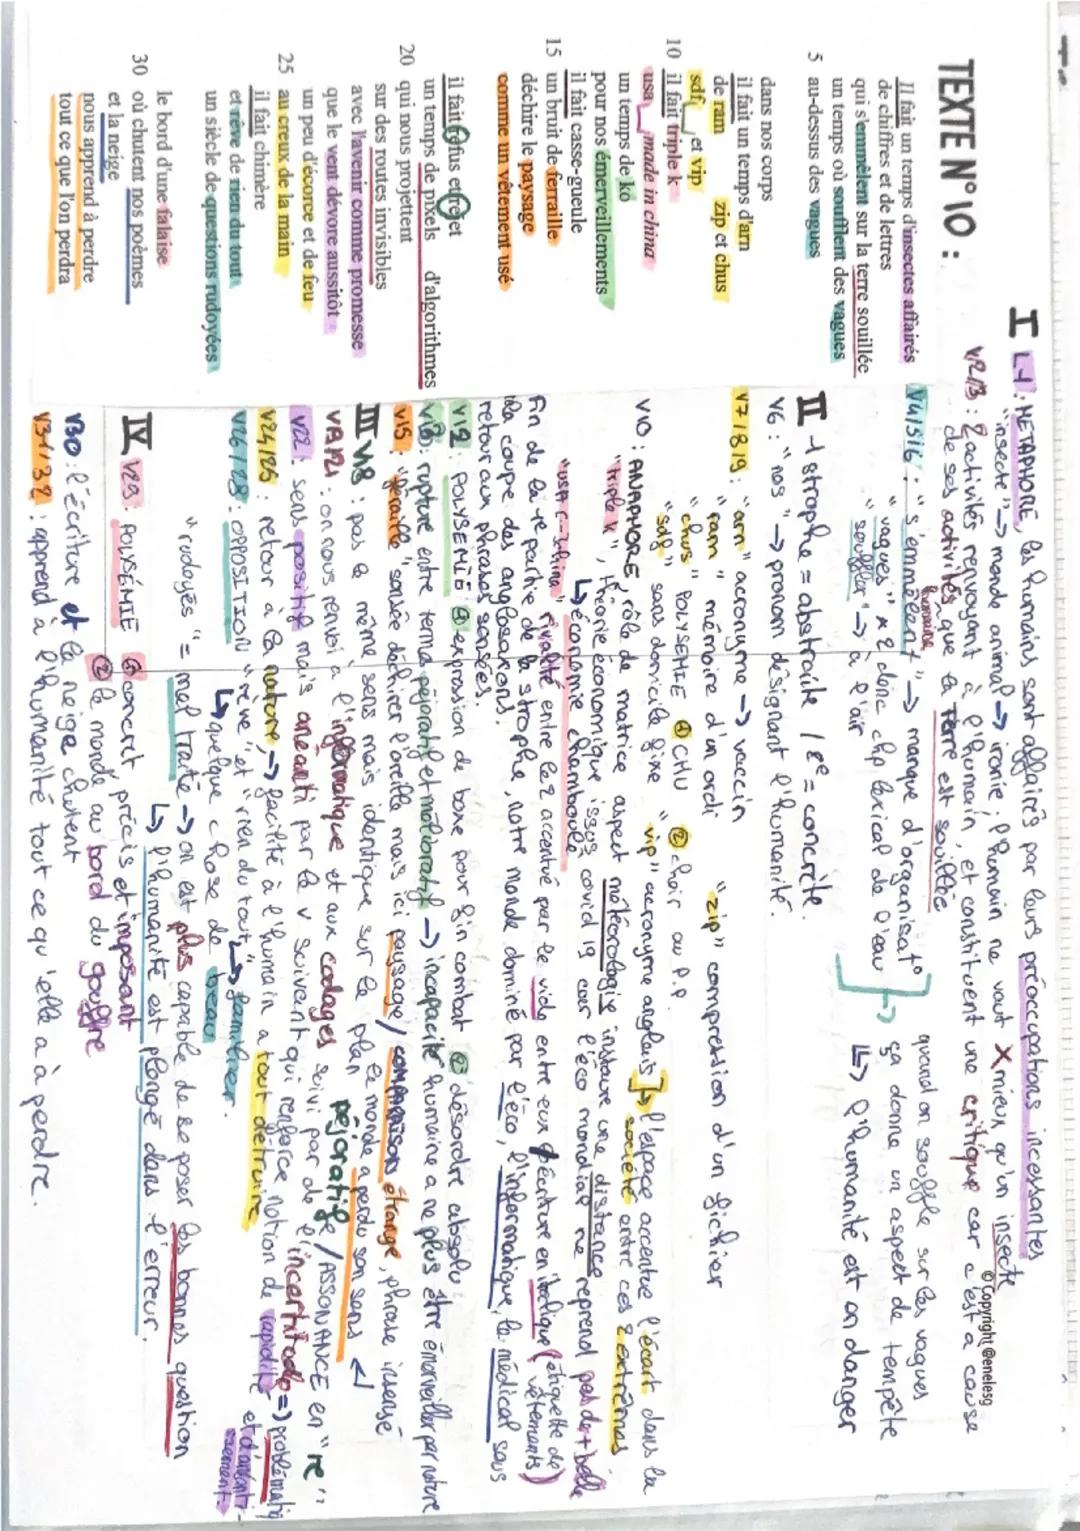 TEXTE N°10 :
Il fait un temps d'insectes affairés
de chiffres et de lettres
qui s'emmêlent sur la terre souillée
un temps où soufflent des vagues
5 au-dessus des vagues
dans nos corps
il fait un temps d'arn
de ram zip et chus
sdf et vip
10 il fait triple k
usa made in china
un temps de ko
pour nos émerveillements
il fait casse-gueule
15 un bruit de ferraille
déchire le paysage
comme un vêtement usé
il fait refus et rejet
un temps de pixels d'algorithmes
20 qui nous projettent
sur des routes invisibles
avec l'avenir comme promesse
que le vent dévore aussitôt
un peu d'écorce et de feu
25 au creux de la main
il fait chimère
et rêve de rien du tout
un siècle de questions rudoyées
le bord d'une falaise
30 où chutent nos poèmes
et la neige
nous apprend à perdre
tout ce que l'on perdra
© Copyright @enelesg
I L1 : METAPHORE, les humains sont affairés par leurs préoccupations incessantes
"insecte" -> monde animal -> ironie, l'humain ne vaut X mieux qu'un insecte
V2/3 : 2 activités renvoyant à l'humain, et constituent une critique car c'est à cause
de ses activités que la Terre est souillée
humaine
V4/5/6 : "s'emmêlent" -> manque d'organisat°
"vagues" x 2 donc chp lexical de l'eau
"souffler" -> à l'air
quand on souffle sur les vagues
ça donne un aspect de tempête
↳ l'humanité est en danger
II 1 strophe = abstraite / 2e = concrète.
V6 : "nos" -> pronom désignant l'humanité.
V7/8/9 : "arn" acronyme -> vaccin
"ram" mémoire d'un ordi "zip" compression d'un fichier
"chus" POLYSEMIE ① CHU ② choir au P.P.
"sdf" sans domicile fixe "vip" acronyme anglais ↳ l'espace accentue l'écart dans la
société entre ces 2 extrêmes
V10 : ANAPHORE, rôle de matrice aspect météorologie instaure une distance
"triple k", théorie économique issus covid 19 car l'éco mondial ne reprend pas de + belle
↳ économie chamboulé
"USA c-I-china" rivalité entre les 2 accentué par le vide entre eux + écriture en italique (étiquette de vêtements)
Fin de la 1e partie de la strophe, notre monde dominé par l'éco, l'informatique, le médical sous
la coupe des anglosaxons.
retour aux phrases sensées.
V12 : POLYSEMIE ① expression de boxe pour fin combat ② désordre absolu
V13 : rupture entre terme péjoratif et mélioratif -> incapacité humaine a ne plus être émerveiller par nature
V15 : "feraille" sensée déchirer l'oreille mais ici paysage / COMPARAISON étrange, phrase inversé
le monde a perdu son sens
III V18 : pas le même sens mais identique sur le plan péjoratif / ASSONANCE en "re"
: on nous renvoi a l'informatique et aux codages suivi par de l'incertitude => problématiq
V22 : sens positif mais anéanti par le v suivant qui renforce notion de rapidité et d'anéantissement.
V24/25 : retour à la nature, -> facilité à l'humain a tout détruire
V26/28 : OPPOSITION "rêve" et "rien du tout"
↳ quelque chose de beau
"rudoyés" = mal traité -> on est plus capable de se poser les bonnes question
↳ l'humanité est plongé dans l'erreur.
IV V29 : POLYSÉMIE ① concret précis et imposant
② le monde au bord du gouffre
V30 : l'écriture et la neige chutent
V31/32 : apprend à l'humanité tout ce qu'elle a à perdre.